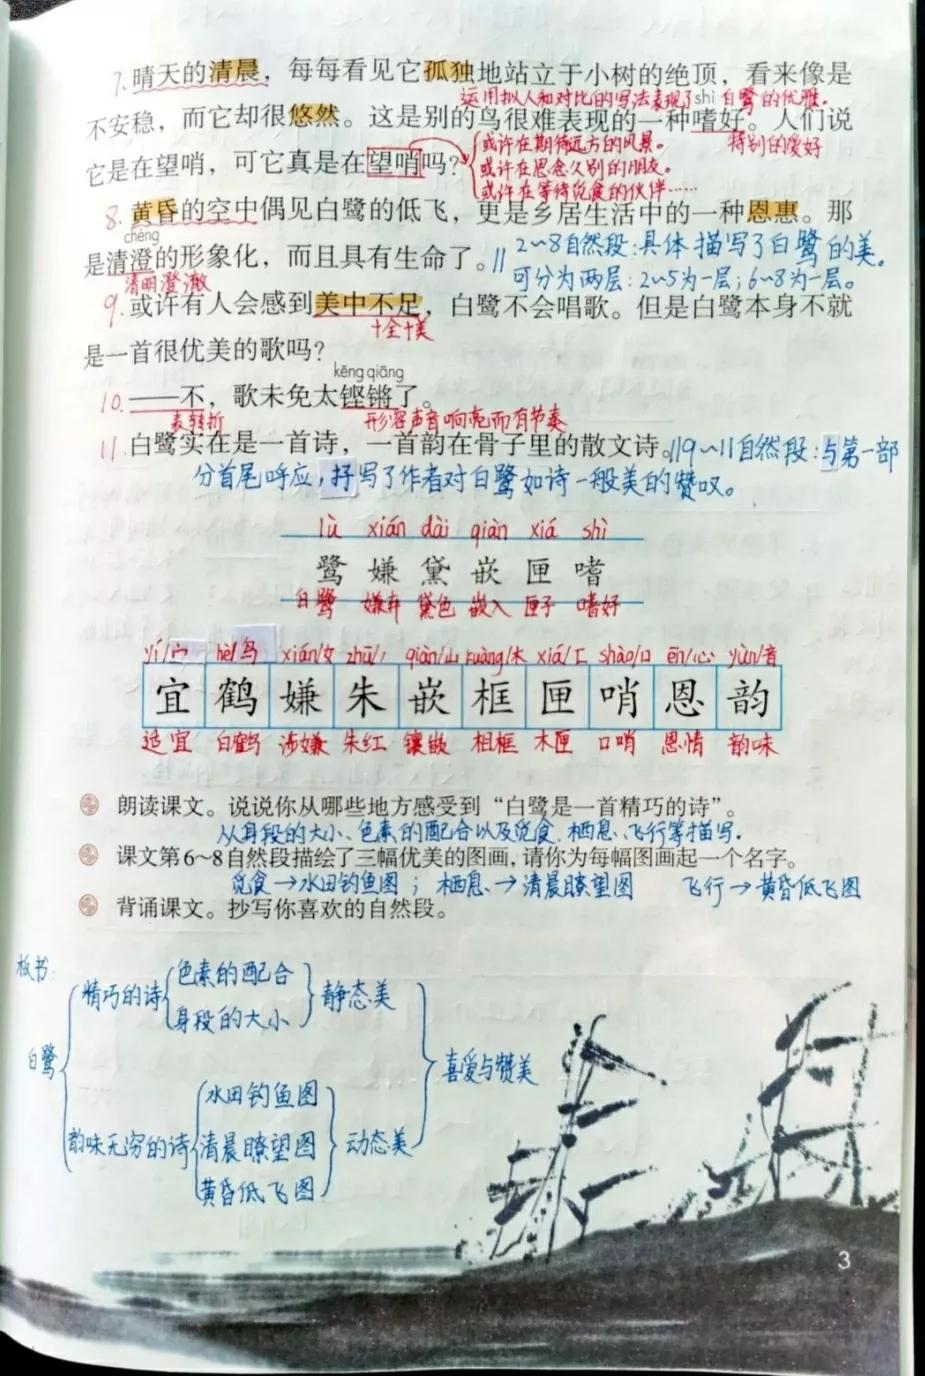 7.晴天的清晨，每每看见它孤独地站立于小树的绝顶，看来像是
运用拟人和对比的写法表现了白鹭的优雅.
shì
不安稳，而它却很悠然。这是别的鸟很难表现的一种嗜好。人们说
或许在期待远方的风景。
特别的爱好
它是在望哨，可它真是在望哨吗？
或许在思念久别的朋友。
或许在等待觅食的伙伴……
8.黄昏的空中偶见白鹭的低飞，更是乡居生活中的一种恩惠。那
chéng
是清澄的形象化，而且具有生命了。
清明澄澈
2~8自然段:具体描写了白鹭的美。
可分为两层:2~5为一层;6~8为一层。
9.或许有人会感到美中不足，白鹭不会唱歌。但是白鹭本身不就
十全十美
是一首很优美的歌吗？
kēng qiāng
10.——不，歌未免太铿锵了。
表转折
形容声音响亮而有节奏
11.白鹭实在是一首诗，一首韵在骨子里的散文诗。
9~11自然段:与第一部
分首尾呼应,抒写了作者对白鹭如诗一般美的赞叹。
lù xián dài qiàn xiá shì
鹭 嫌 黛 嵌 匣 嗜
白鹭 嫌弃 黛色 嵌入 匣子 嗜好
yí/宀 hè/鸟 xián/女 zhū/丿 qiàn/山 kuàng/木 xiá/匚 shào/口 ēn/心 yùn/音
宜 鹤 嫌 朱 嵌 框 匣 哨 恩 韵
适宜 白鹤 涉嫌 朱红 镶嵌 相框 木匣 口哨 恩情 韵味
朗读课文。说说你从哪些地方感受到“白鹭是一首精巧的诗”。
从身段的大小、色素的配合以及觅食、栖息、飞行等描写.
课文第6~8自然段描绘了三幅优美的图画,请你为每幅图画起一个名字。
觅食→水田钓鱼图；栖息→清晨瞭望图 飞行→黄昏低飞图
背诵课文。抄写你喜欢的自然段。
板书:
白鹭
精巧的诗
色素的配合
身段的大小
静态美
韵味无穷的诗
水田钓鱼图
清晨瞭望图
黄昏低飞图
动态美
喜爱与赞美
3